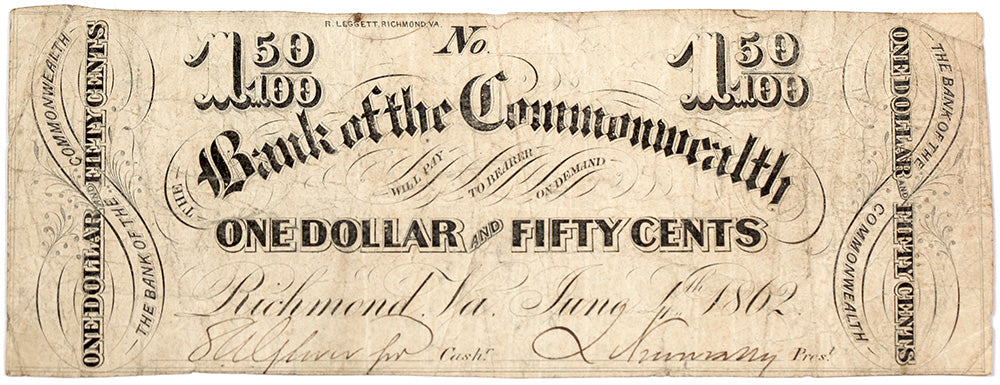 R. LEGGETT, RICHMOND, VA.
1 50/100 No. 1 50/100
THE Bank of the Commonwealth
WILL PAY TO BEARER ON DEMAND
ONE DOLLAR AND FIFTY CENTS
Richmond, Va. June 4th 1862.
Cashr Prest
ONE DOLLAR AND FIFTY CENTS
THE BANK OF THE COMMONWEALTH
THE BANK OF THE COMMONWEALTH
ONE DOLLAR AND FIFTY CENTS